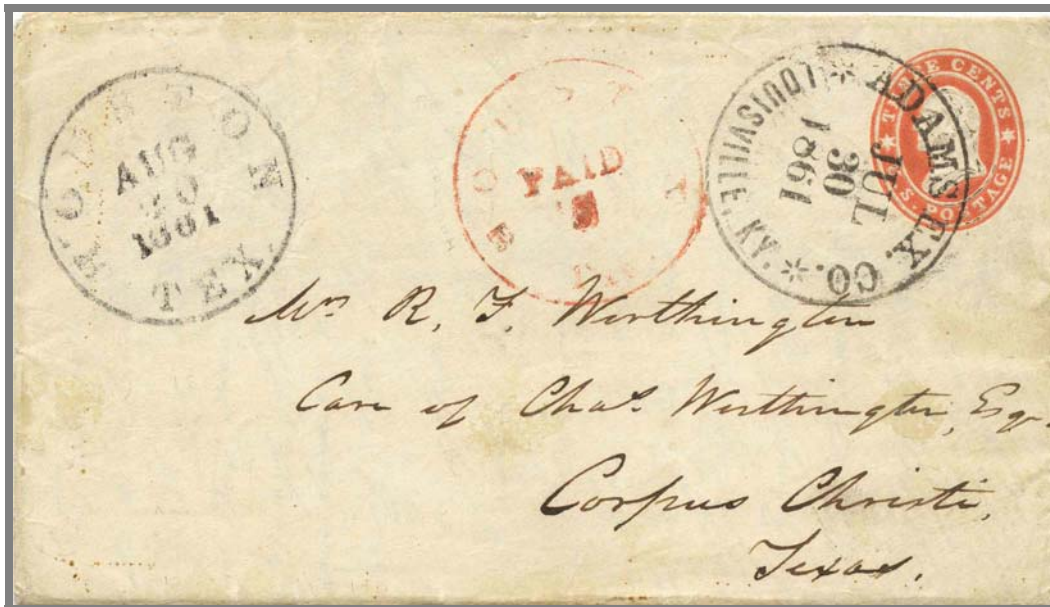 HOUSTON
AUG
20
1861
TEX.
PAID
ADAMS EX. CO.
LOUISVILLE, KY.
JUL
30
1861
THREE CENTS
U.S. POSTAGE
Mr R. F. Worthington
Care of Chas. Worthington, Esqr.
Corpus Christi,
Texas.